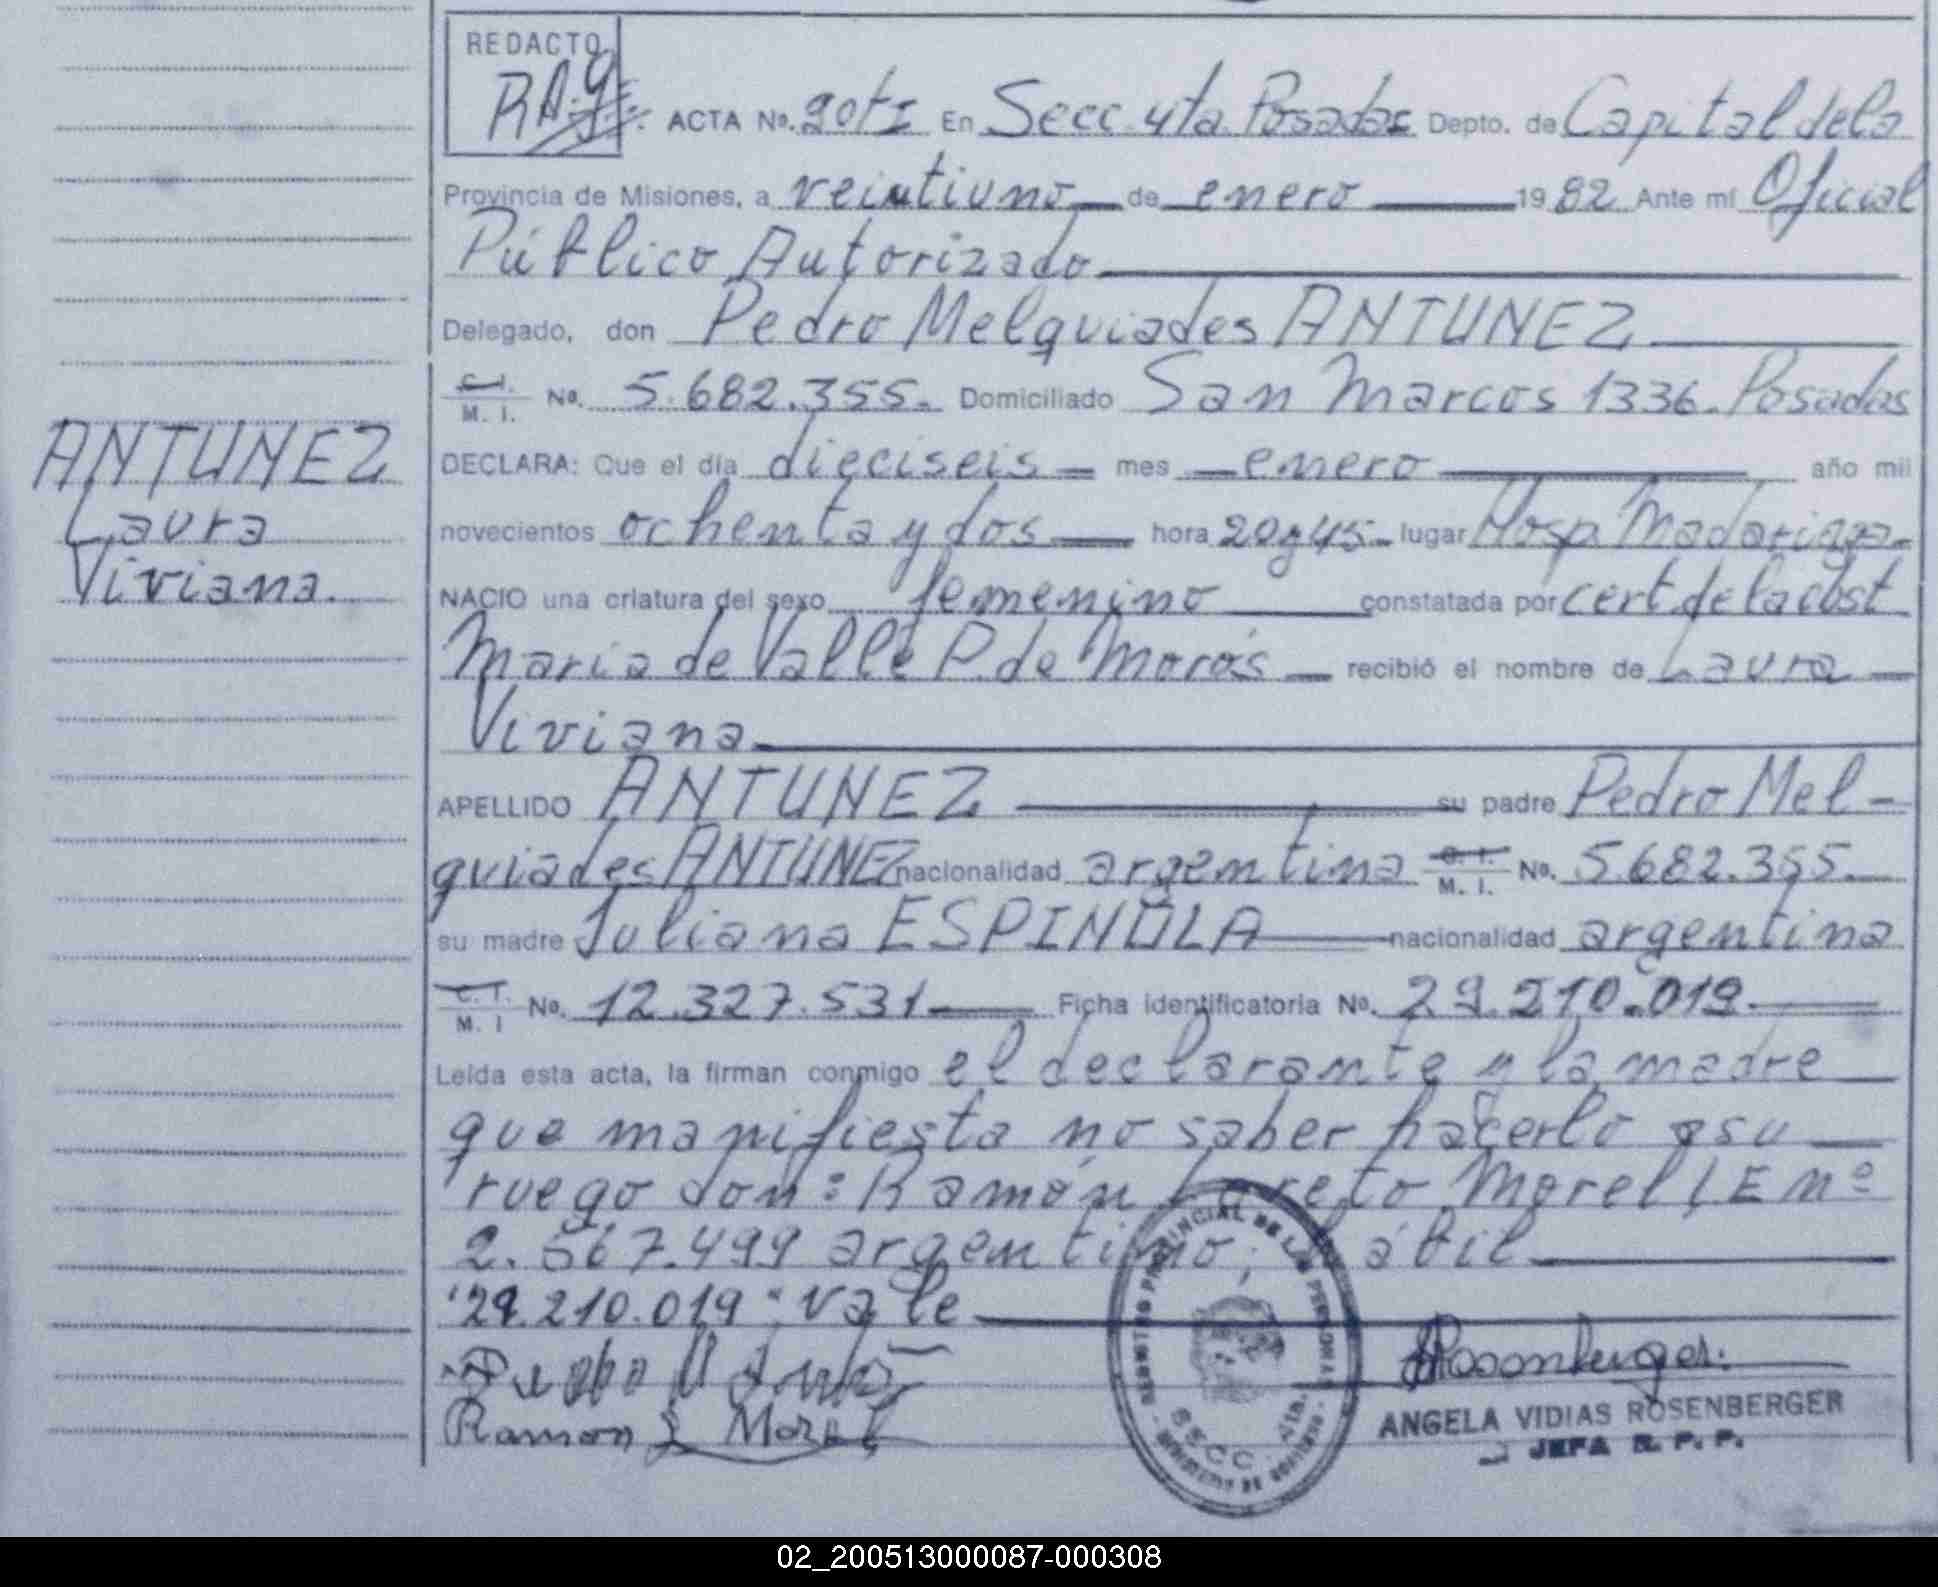 REDACTO
ACTA No. 90 tI En Secc. 4ta. Posadas Depto. de Capital de la
Provincia de Misiones, a veintiuno de enero 1982 Ante mí Oficial
Público Autorizado
Delegado, don Pedro Melquiades ANTUNEZ
C. I. M. I. No. 5.682.355. Domiciliado San Marcos 1336. Posadas
ANTUNEZ
Laura
Viviana.
DECLARA: Que el día dieciseis mes enero año mil
novecientos ochenta y dos hora 20 y 45 lugar Hosp. Madariaga
NACIO una criatura del sexo femenino constatada por cert. de la obst
Maria de Valle P. de Morás recibió el nombre de Laura
Viviana
APELLIDO ANTUNEZ su padre Pedro Mel-
quiades ANTUNEZ nacionalidad argentina C. I. M. I. No. 5.682.355.
su madre Juliana ESPINOLA nacionalidad argentina
C. I. M. I No. 12.327.531 Ficha identificatoria No. 29.210.019.
Leída esta acta, la firman conmigo el declarante y la madre
que manifiesta no saber hacerlo a su
ruego don: Ramón Loreto Morel LE nº
2.567.499 argentino, hábil
"29.210.019" vale
Ramon L Morel
REGISTRO PROVINCIAL DE LAS PERSONAS
SECC. 4ta.
MINISTERIO DE GOBIERNO
ANGELA VIDIAS ROSENBERGER
JEFA R. P. P.
02_200513000087-000308